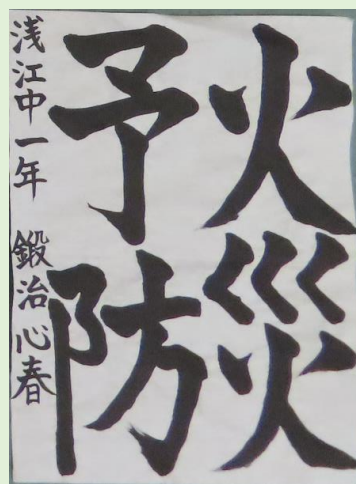 火災
予防
浅江中一年 鍛治心春